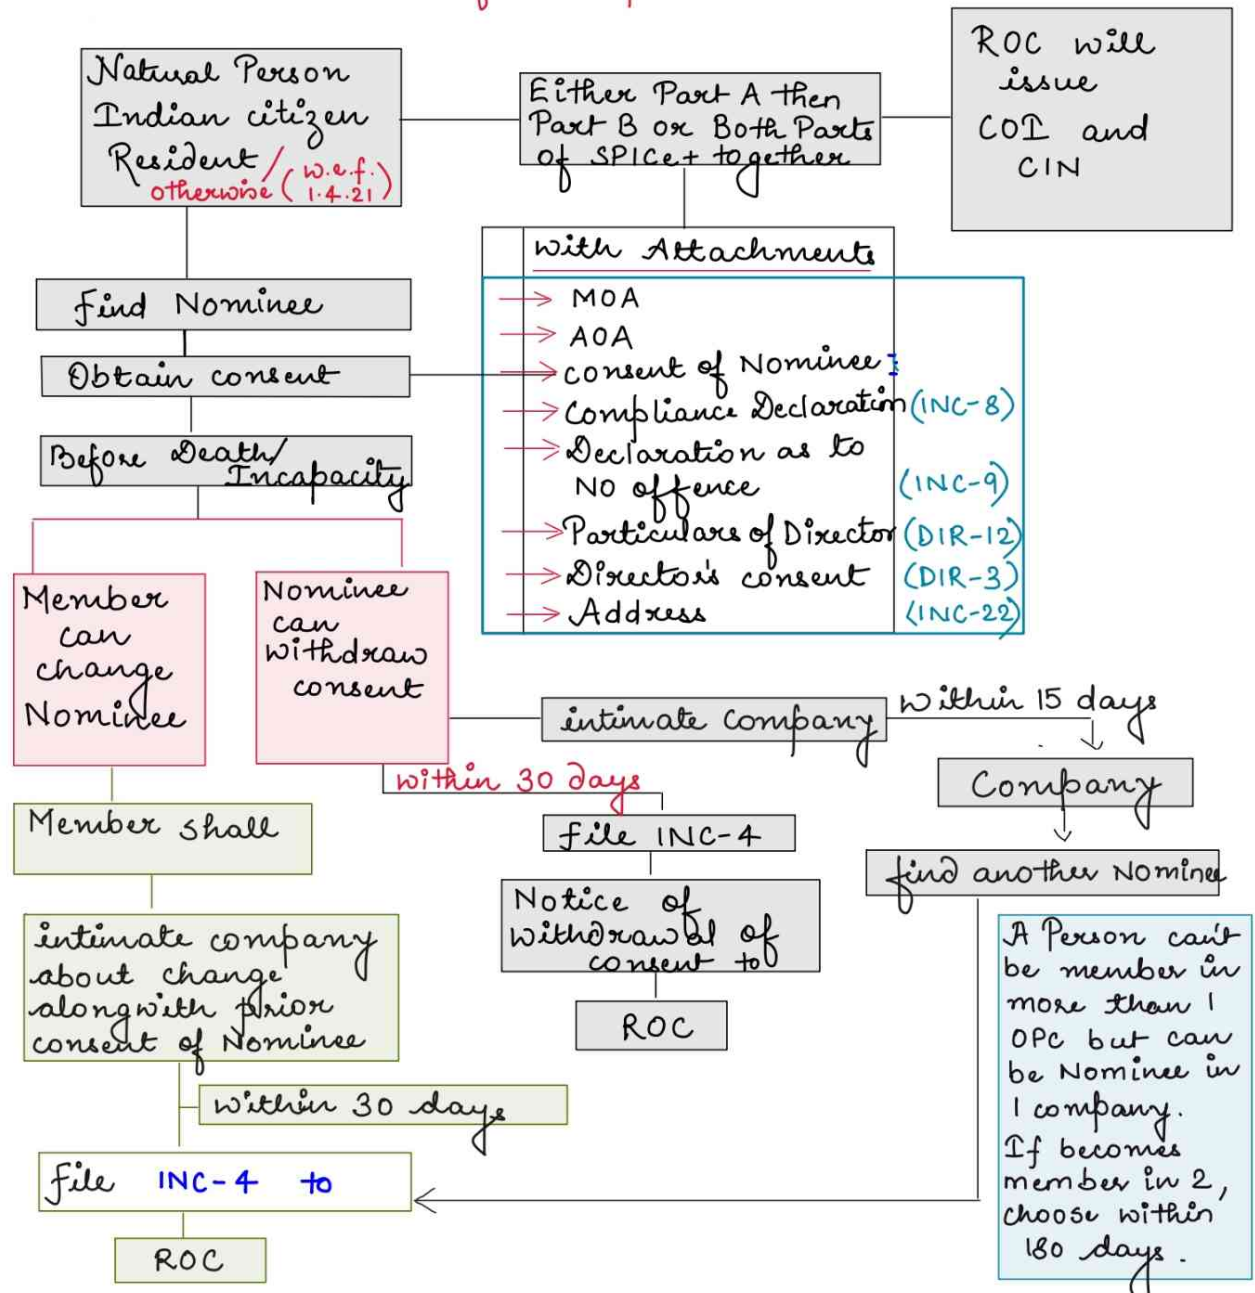 Natural Person
Indian citizen
Resident/
otherwise (w.e.f. 1.4.21)
Either Part A then
Part B or Both Parts
of SPICe+ together
ROC will
issue
COI and
CIN
Find Nominee
Obtain consent
Before Death/
Incapacity
with Attachments
MOA
AOA
consent of Nominee
Compliance Declaration (INC-8)
Declaration as to
NO offence (INC-9)
Particulars of Director (DIR-12)
Director's consent (DIR-3)
Address (INC-22)
Member
can
change
Nominee
Nominee
can
withdraw
consent
intimate company
within 15 days
Company
find another Nominee
within 30 days
file INC-4
Notice of
withdrawal of
consent to
ROC
Member shall
intimate company
about change
alongwith prior
consent of Nominee
within 30 days
file INC-4 to
ROC
A Person can't
be member in
more than 1
OPC but can
be Nominee in
1 company.
If becomes
member in 2,
choose within
180 days.